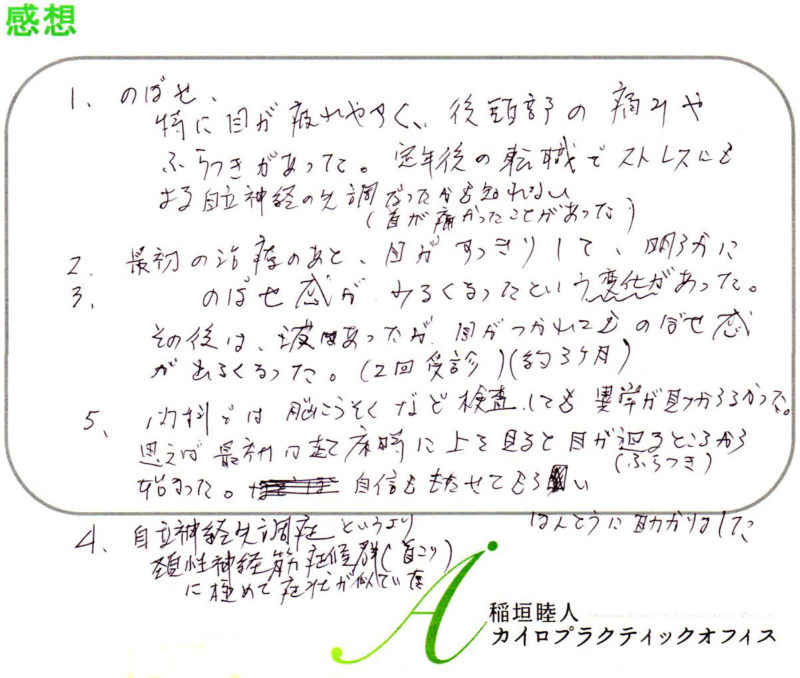 感想
1、のぼせ、
特に目が疲れやすく、後頭部の痛みや
ふらつきがあった。定年後の転職でストレスに
よる自立神経の失調だったかも知れない
(首が痛かったことがあった)
2、最初の治療のあと、目がすっきりして、明らかに
3、のぼせ感がなくなったという変化があった。
その後は、波はあったが目がつかれてものぼせ感
が出なくなった。(2回受診)(約3ヶ月)
5、内科では脳こうそくなど検査しても異常が見つからなかった。
思えば最初は起床時に上を見ると目が廻るところから
(ふらつき)
始まった。自信をもたせてもらい
ほんとうに助かりました
4、自立神経失調症というより
頚性神経筋症候群(首こり)
に極めて症状が似ている
稲垣睦人
カイロプラクティックオフィス